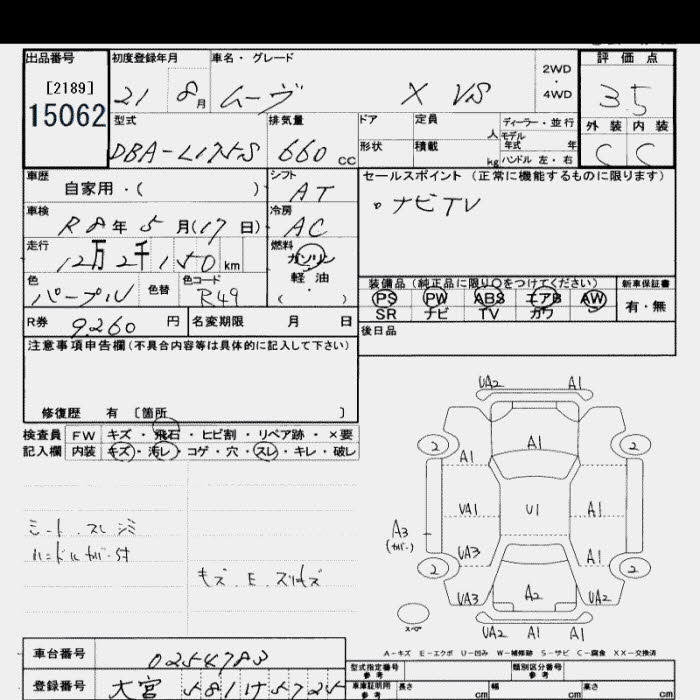 出品番号 初度登録年月 車名・グレード 2WD・4WD 評価点
[2189]
15062
21 8月 ムーヴ X VS 3.5
型式 排気量 ドア 定員 人 ディーラー・並行 外装 内装
DBA-L175S 660 cc 形状 積載 kg モデル年式 年 C C
ハンドル 左・右
車歴 シフト セールスポイント (正常に機能するものに限ります)
自家用・( ) AT ・ナビTV
車検 冷房
R8年5月(17日) AC
走行 燃料
12万2千150km ガソリン
軽油
( )
色 色替 色コード 装備品 (純正品に限り○をつけてください) 新車保証書
パープル R49 PS PW ABS エアB AW 有・無
SR ナビ TV カワ
R券 9,260 円 名変期限 月 日 後日品
注意事項申告欄(不具合内容等は具体的に記入して下さい)
修復歴 有 〔箇所 〕
検査員 FW キズ・飛石・ヒビ割・リペア跡・×要
記入欄 内装 キズ・汚レ・コゲ・穴・スレ・キレ・破レ
UA2 A1
2 2
A1 A1
UA1 U1 A1
A3
(カバー)
UA3 A1
2 2
UA3 A2 A1
スペア
UA2 A1 A1
シート スレ シミ
キズ、E、スリキズ
A-キズ E-エクボ U-凹み W-補修跡 S-サビ C-腐食 XX-交換済
車台番号 0254783
登録番号 大宮 581 け 5725
型式指定番号 参考 類別区分番号 参考
車庫証明用 参考 長さ cm 幅 cm 高さ cm